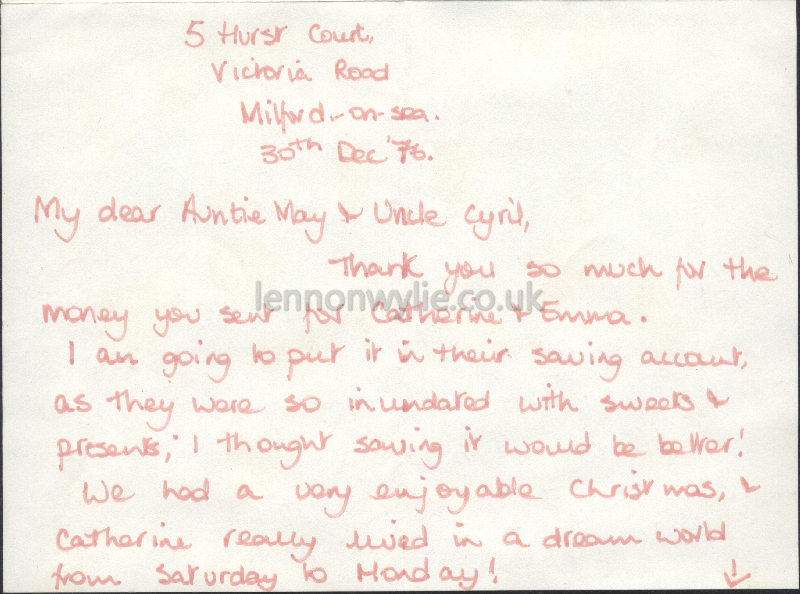 5 Hurst Court,
Victoria Road
Milford-on-sea.
30th Dec '76.
My dear Auntie May & Uncle Cyril,
Thank you so much for the
lennonwylie.co.uk
money you sent for Catherine & Emma.
I am going to put it in their saving account,
as they were so inundated with sweets &
presents; I thought saving it would be better!
We had a very enjoyable Christmas, &
Catherine really lived in a dream world
from Saturday to Monday! ↓